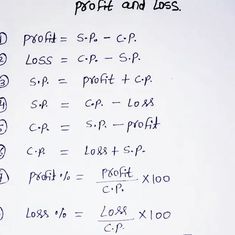 Profit and Loss.
① Profit = S.P. - C.P.
② Loss = C.P. - S.P.
③ S.P. = profit + C.P.
4 S.P. = C.P. - Loss
C.P. = S.P. - profit
C.P. = Loss + S.P.
Profit % = Profit/C.P. ×100
Loss % = Loss/C.P. ×100